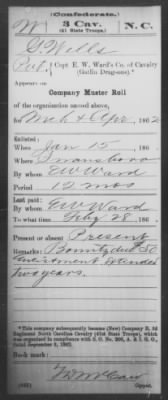 (Confederate.)
W 3 Cav. N. C.
(41 State Troops.)
G Wells
Pvt, Capt. E. W. Ward's Co. of Cavalry
(Gatlin Dragoons).*
Appears on
Company Muster Roll
of the organization named above,
for Mch & Apr, 1862
Enlisted:
When Jan 15, 186
Where Swansboro
By whom E W Ward
Period 12 mos
Last paid:
By whom E W Ward
To what time Feby 28, 186
Present or absent Present
Remarks: Bounty due 50
Enlistment extended
two years.
*This company subsequently became (New) Company B, 3d
Regiment North Carolina Cavalry (41st State Troops), which
was organized in compliance with S. O. No. 205, A. & I. G. O.,
dated September 3, 1862.
Book mark:
(642) Copyist.